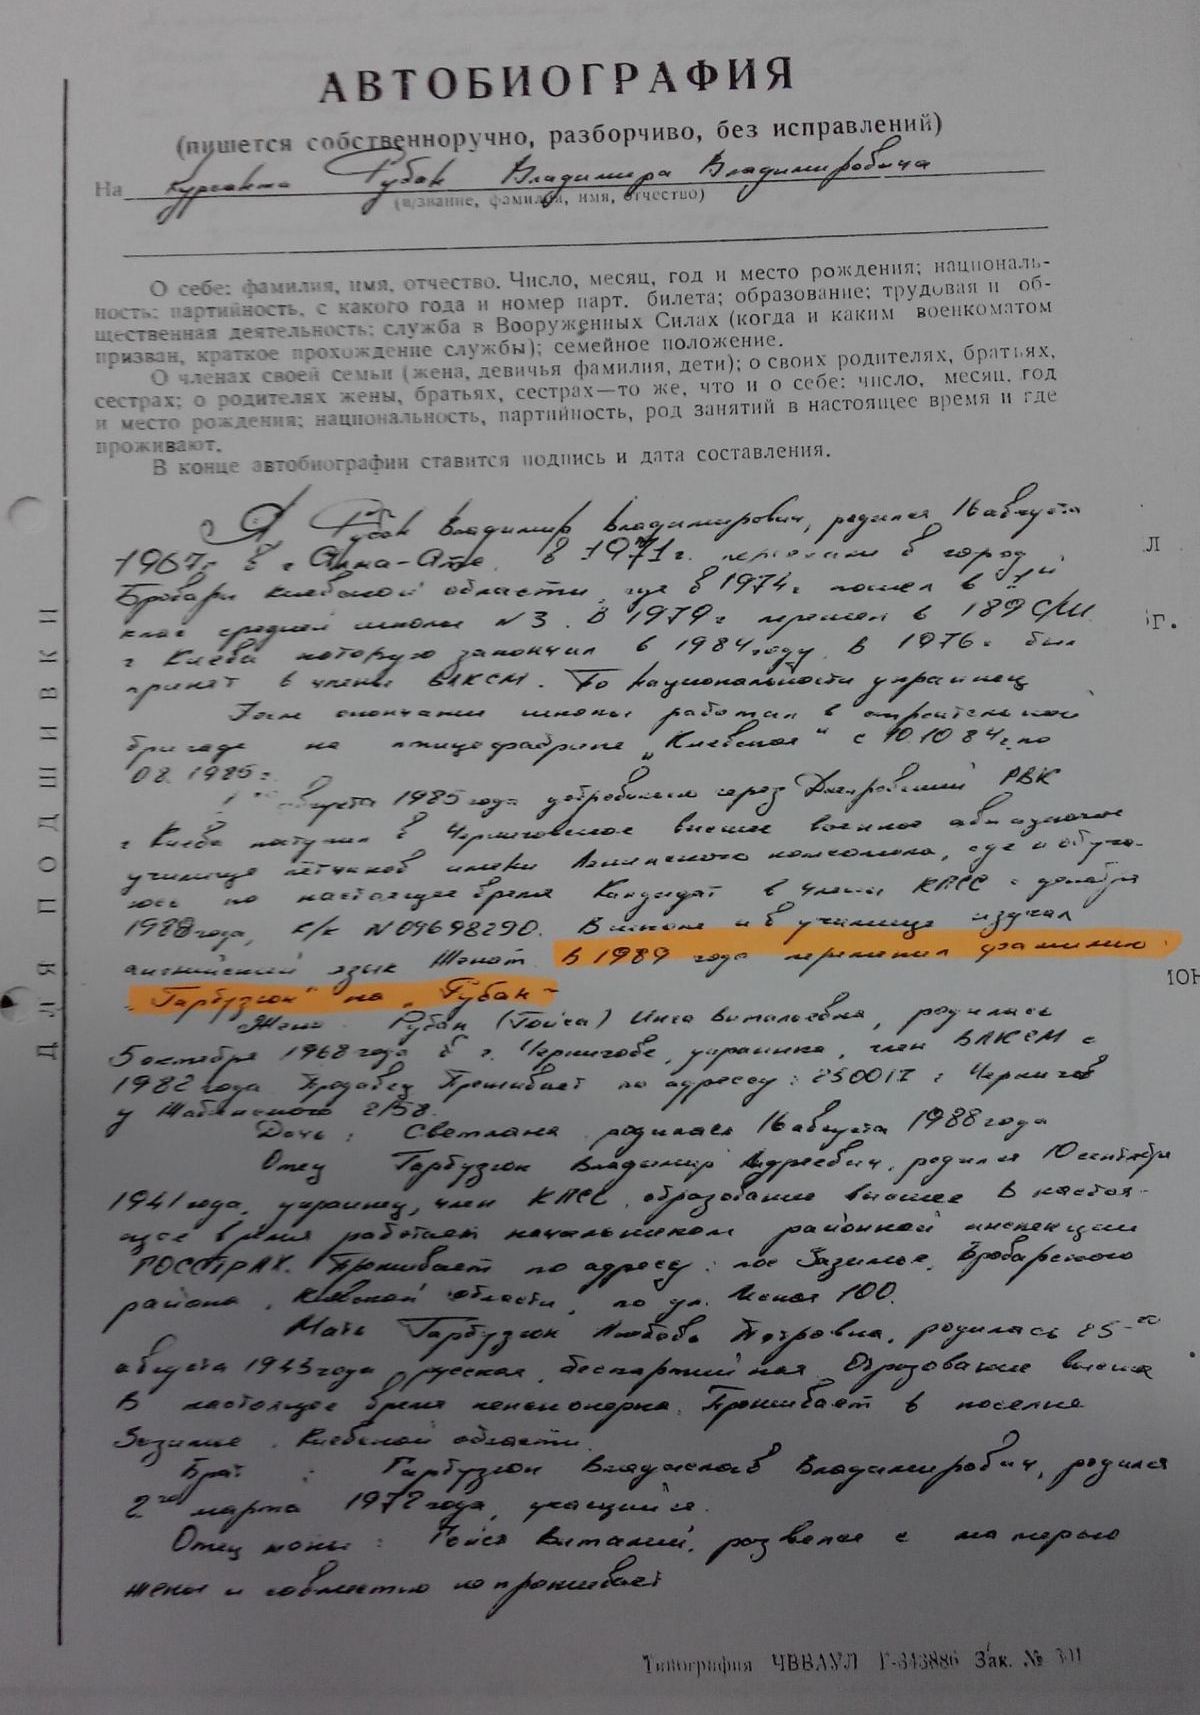 АВТОБИОГРАФИЯ
(пишется собственноручно, разборчиво, без исправлений)
На курсанта Рубан Владимира Владимировича
(в/звание, фамилия, имя, отчество)
О себе: фамилия, имя, отчество. Число, месяц, год и место рождения; националь-
ность; партийность, с какого года и номер парт. билета; образование; трудовая и об-
щественная деятельность; служба в Вооруженных Силах (когда и каким военкоматом
призван, краткое прохождение службы); семейное положение.
О членах своей семьи (жена, девичья фамилия, дети); о своих родителях, братьях,
сестрах; о родителях жены, братьях, сестрах—то же, что и о себе: число, месяц, год
и место рождения; национальность, партийность, род занятий в настоящее время и где
проживают.
В конце автобиографии ставится подпись и дата составления.
Я Рубан Владимир Владимирович, родился 16 августа
1967г в г Алма-Ате. в 1971г. переехали в город
Бровары Киевской области, где в 1974г пошел в 1й
клас средней школы N3. В 1979г перешел в 189 С/Ш
г Киева которую закончил в 1984 году. В 1976г был
принят в члены ВЛКСМ. По национальности украинец
После окончания школы работал в строительной
бригаде на птицефабрике „Киевская" с 10.10.84г. по
08. 1985г.
августа 1985 года добровольно через Днепровский РВК
г Киева поступил в Черниговское высшее военное авиационное
училище лётчиков имени Ленинского комсомола, где и обуча-
юсь по настоящее время Кандидат в члены КПСС с декабря
1988 года, к/к N09698290. В школе и в училище изучал
английский язык Женат. В 1989 года переменил фамилию
„Гарбузюк" на „Рубан"
Жена: Рубан (Гойса) Инга Витальевна, родилась
5 октября 1968 года в г. Чернигове, украинка, член ВЛКСМ с
1982 года. Продавец Проживает по адрессу: 250017 г Чернигов
у 2/58.
Дочь: Светлана родилась 16 августа 1988 года
Отец Гарбузюк Владимир Андреевич, родился 10 сентября
1941 года, украинец, член КПСС, образование высшее В настоя-
щее время работает начальником районной инспекции
ГОССТРАХ. Проживает по адресу: пос Зазимье, Броварского
района, Киевской области, по ул. 100.
Мать Гарбузюк Любовь Петровна, родилась 25-го
августа 1943 года, русская, беспартийная. Образование высшее
В настоящее время пенсионерка. Проживает в поселке
Зазимье, Киевской области.
Брат: Гарбузюк Владислав Владимирович, родился
2го марта 1972 года, учащийся.
Отец жены: Гойса Виталий, развелся с матерью
жены и совместно не проживает
ДЛЯ ПОДШИВКИ
Типография ЧВВАУЛ Г-343886 Зак. №